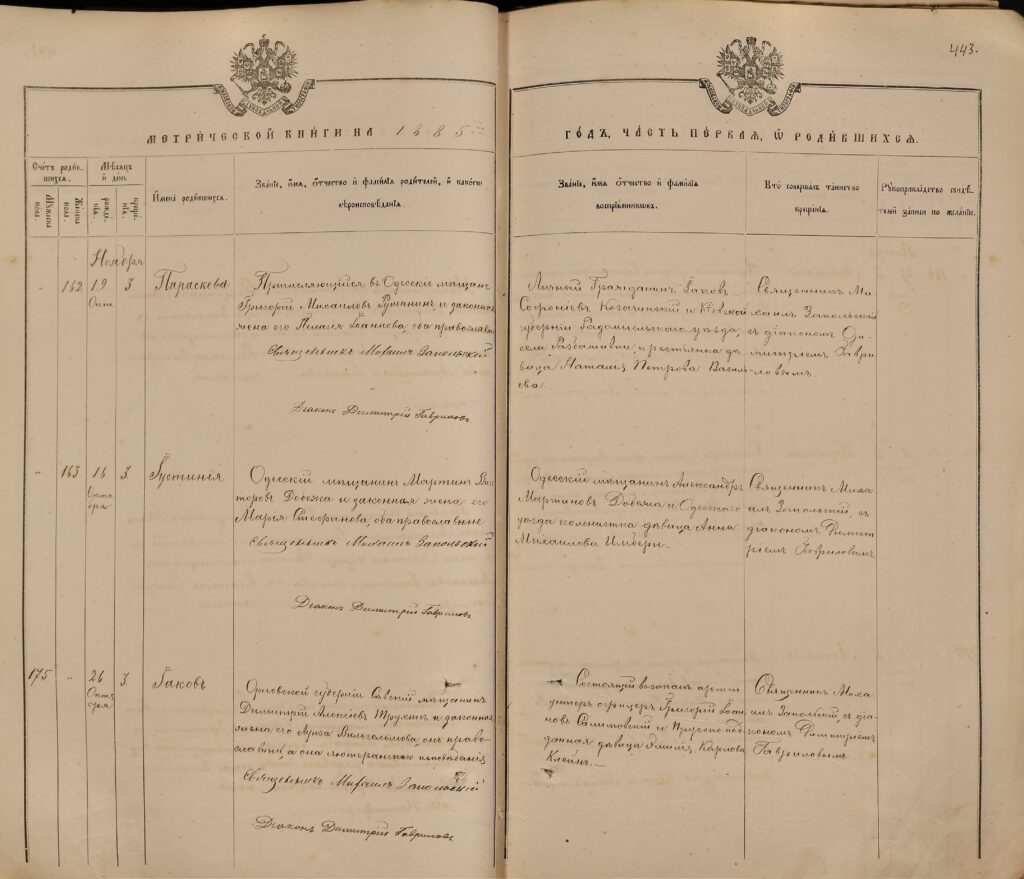 443.
МЕТРИ́ЧЕСКОЙ КНИ́ГИ НА 1885й
ГО́ДЪ, ЧА́СТЬ ПЕ́РВАЯ, Ѡ РОДИ́ВШИХСЯ.
Счетъ роди́вшихся.
Мѣ́сяцъ и҆ день
Мужеска пола.
Женска пола.
рожденїя.
крещенїя.
И҆мена роди́вшихся.
Зва́нїе, и҆́мя, ѻ҆́тчество и҆ фами́лїя роди́телей, и҆ како́гѡ
вѣроисповѣ́данїя.
Зва́нїе, и҆́мя ѻ҆́тчество и҆ фами́лїя
воспрїе́мниковъ.
Кто̀ соверша́лъ та́инство
креще́нїя.
Рꙋкоприкла́дство свидѣ́-
телей за́писи по жела́нїю.
Ноября
" 162 19 3 Параскева
Окт
Причисляющійся въ Одесскіе мѣщане
Григорій Михаиловъ и законная
жена его Пелагія Іоаннова, оба православн
Священникъ Михаилъ Запольскій
Діаконъ Димитрій Гавриловъ
Личной Гражданинъ Іаковъ
Софроніевъ и Кіевской
губерніи Радомысльскаго уѣзда,
села крестьянка дѣ-
вица Наталія Петрова Василь-
ева.
Священникъ Ми-
хаилъ Запольскій
съ діакономъ Ди-
митріемъ Гаври-
ловымъ
" 163 16 3 Іустинія
Октя
бря
Одесскій мѣщанинъ Мартинъ Вик-
торовъ Добежа и законная жена его
Марія Стефанова, оба православные
Священникъ Михаилъ Запольскій
Діаконъ Димитрій Гавриловъ
Одесскій мѣщанинъ Александръ
Мартиновъ Добежа и Одесскаго
уѣзда колонистка дѣвица Анна
Михаилова
Священникъ Миха-
илъ Запольскій, съ
діакономъ Димит-
ріемъ Гавриловымъ
175 " 26 3 Іаковъ
Октя
бря
Орловской губерніи Сѣвскій мѣщанинъ
Димитрій Алексіевъ Трухинъ и законная
жена его Луиза Вильгельмова, онъ право-
славный, а она лютеранскаго исповѣданія
Священникъ Михаилъ Запольскій
Діаконъ Димитрій Гавриловъ
Состоящій в запасѣ арміи
унтеръ офицеръ Григорій Іоан-
новъ Салимовскій и Прусско-под-
данная дѣвица Эмилія Карлова
Клейнъ.—
Священникъ Миха-
илъ Запольскій, съ діа-
кономъ Димитріемъ
Гавриловымъ.